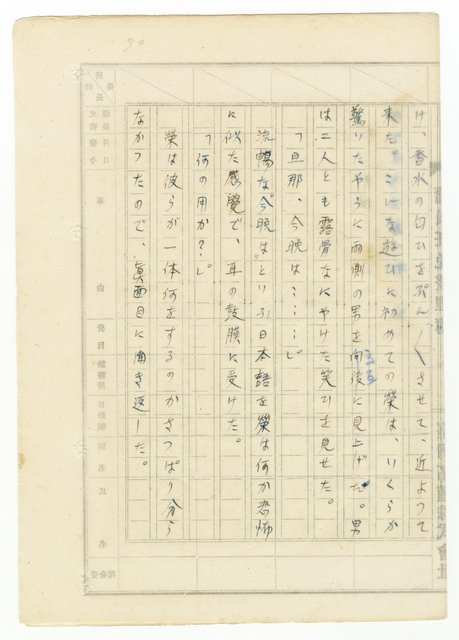 け、香水の匂ひをぷん〱させて、近よつて
来た。こんな遊びに初めての榮は、いくらか
驚いたやうに両側の男を交互に見上げた。男
は二人とも露骨なにやけた笑ひを見せた。
「旦那、今晩は……」
流暢な“今晩は”といふ日本語を榮は何か恐怖
に似た感覺で、耳の鼓膜に受けた。
「何の用か？」
榮は彼らが一体何をするのかさつぱり分ら
なかつたので、眞面目に聞き返した。